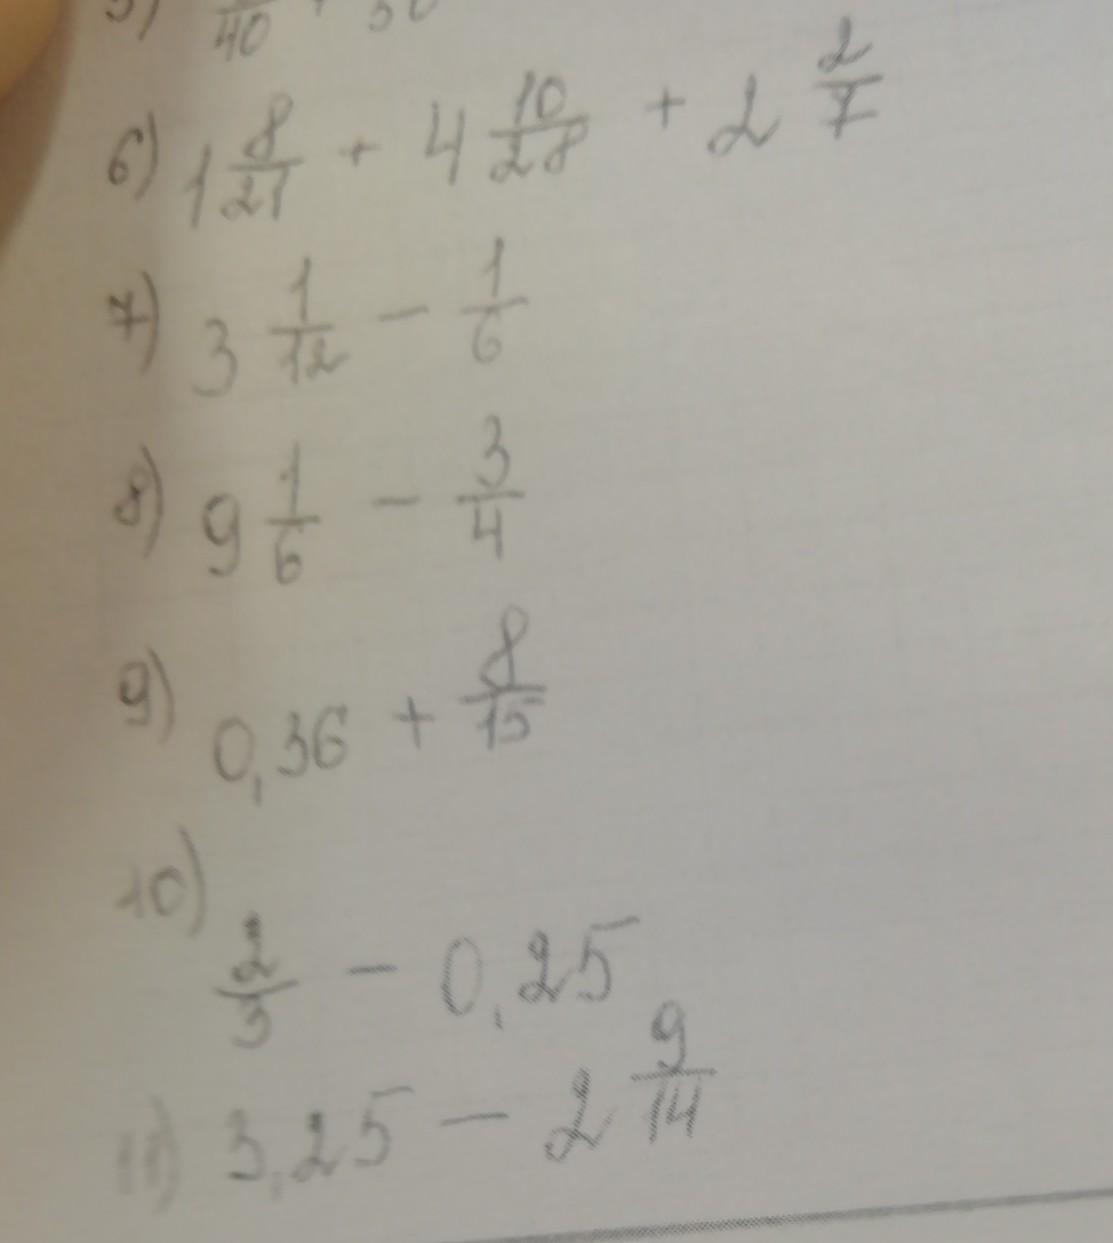 5) /40
6) 1 8/21 + 4 10/28 + 2 2/7
7) 3 1/12 - 1/6
8) 9 1/6 - 3/4
9) 0,36 + 8/15
10) 2/3 - 0,25
11) 3,25 - 2 9/14